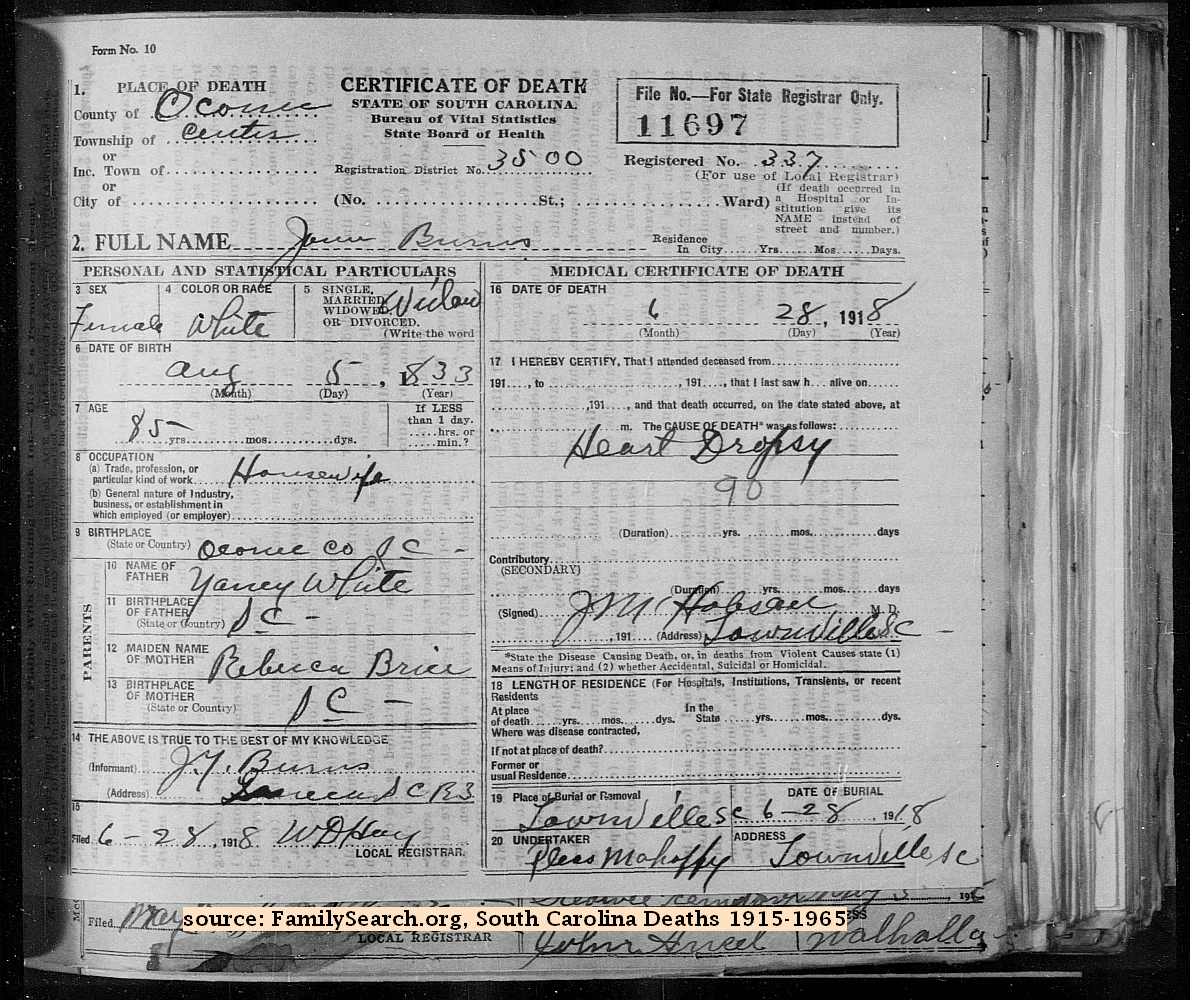 Form No. 10
1. PLACE OF DEATH
County of Oconee
Township of Center
or
Inc. Town of
or
City of
CERTIFICATE OF DEATH
STATE OF SOUTH CAROLINA.
Bureau of Vital Statistics
State Board of Health
Registration District No. 3500
(No. St.; Ward)
File No.—For State Registrar Only.
11697
Registered No. 337
(For use of Local Registrar)
(If death occurred in
a Hospital or In-
stitution give its
NAME instead of
street and number.)
2. FULL NAME Jane Burns
Residence
In City Yrs. Mos. Days.
PERSONAL AND STATISTICAL PARTICULARS
3 SEX
Female
4 COLOR OR RACE
White
5 SINGLE,
MARRIED
WIDOWED,
OR DIVORCED.
(Write the word
Widow
6 DATE OF BIRTH
Aug 5, 1833
(Month) (Day) (Year)
7 AGE
85 yrs. mos. dys.
If LESS
than 1 day.
hrs. or
min.?
8 OCCUPATION
(a) Trade, profession, or
particular kind of work Housewife
(b) General nature of Industry,
business, or establishment in
which employed (or employer)
9 BIRTHPLACE
(State or Country) Oconee Co S C -
PARENTS
10 NAME OF
FATHER Yancy White
11 BIRTHPLACE
OF FATHER
(State or Country) S C -
12 MAIDEN NAME
OF MOTHER Rebecca Brice
13 BIRTHPLACE
OF MOTHER
(State or Country) S C -
14 THE ABOVE IS TRUE TO THE BEST OF MY KNOWLEDGE
(Informant) J.Y. Burns
(Address) Seneca S C R3
15
Filed 6-28, 1918 W D Hay
LOCAL REGISTRAR.
MEDICAL CERTIFICATE OF DEATH
16 DATE OF DEATH
6 28, 1918
(Month) (Day) (Year)
17 I HEREBY CERTIFY, That I attended deceased from
191 , to , 191 , that I last saw h alive on
,191 , and that death occurred, on the date stated above, at
m. The CAUSE OF DEATH* was as follows:
Heart Dropsy
90
(Duration) yrs. mos. days
Contributory
(SECONDARY)
(Duration) yrs. mos. days
(Signed) J M Hobson M. D.
, 191 (Address) Townville S C -
*State the Disease Causing Death, or, in deaths from Violent Causes state (1)
Means of Injury; and (2) whether Accidental, Suicidal or Homicidal.
18 LENGTH OF RESIDENCE (For Hospitals, Institutions, Transients, or recent
Residents
At place
of death yrs. mos. dys.
In the
State yrs. mos. dys.
Where was disease contracted,
If not at place of death?
Former or
usual Residence
19 Place of Burial or Removal
Townville SC
DATE OF BURIAL
6-28, 1918
20 UNDERTAKER
Pless Mahaffy
ADDRESS
Townville SC
Filed, May
LOCAL REGISTRAR
Walhalla
source: FamilySearch.org, South Carolina Deaths 1915-1965